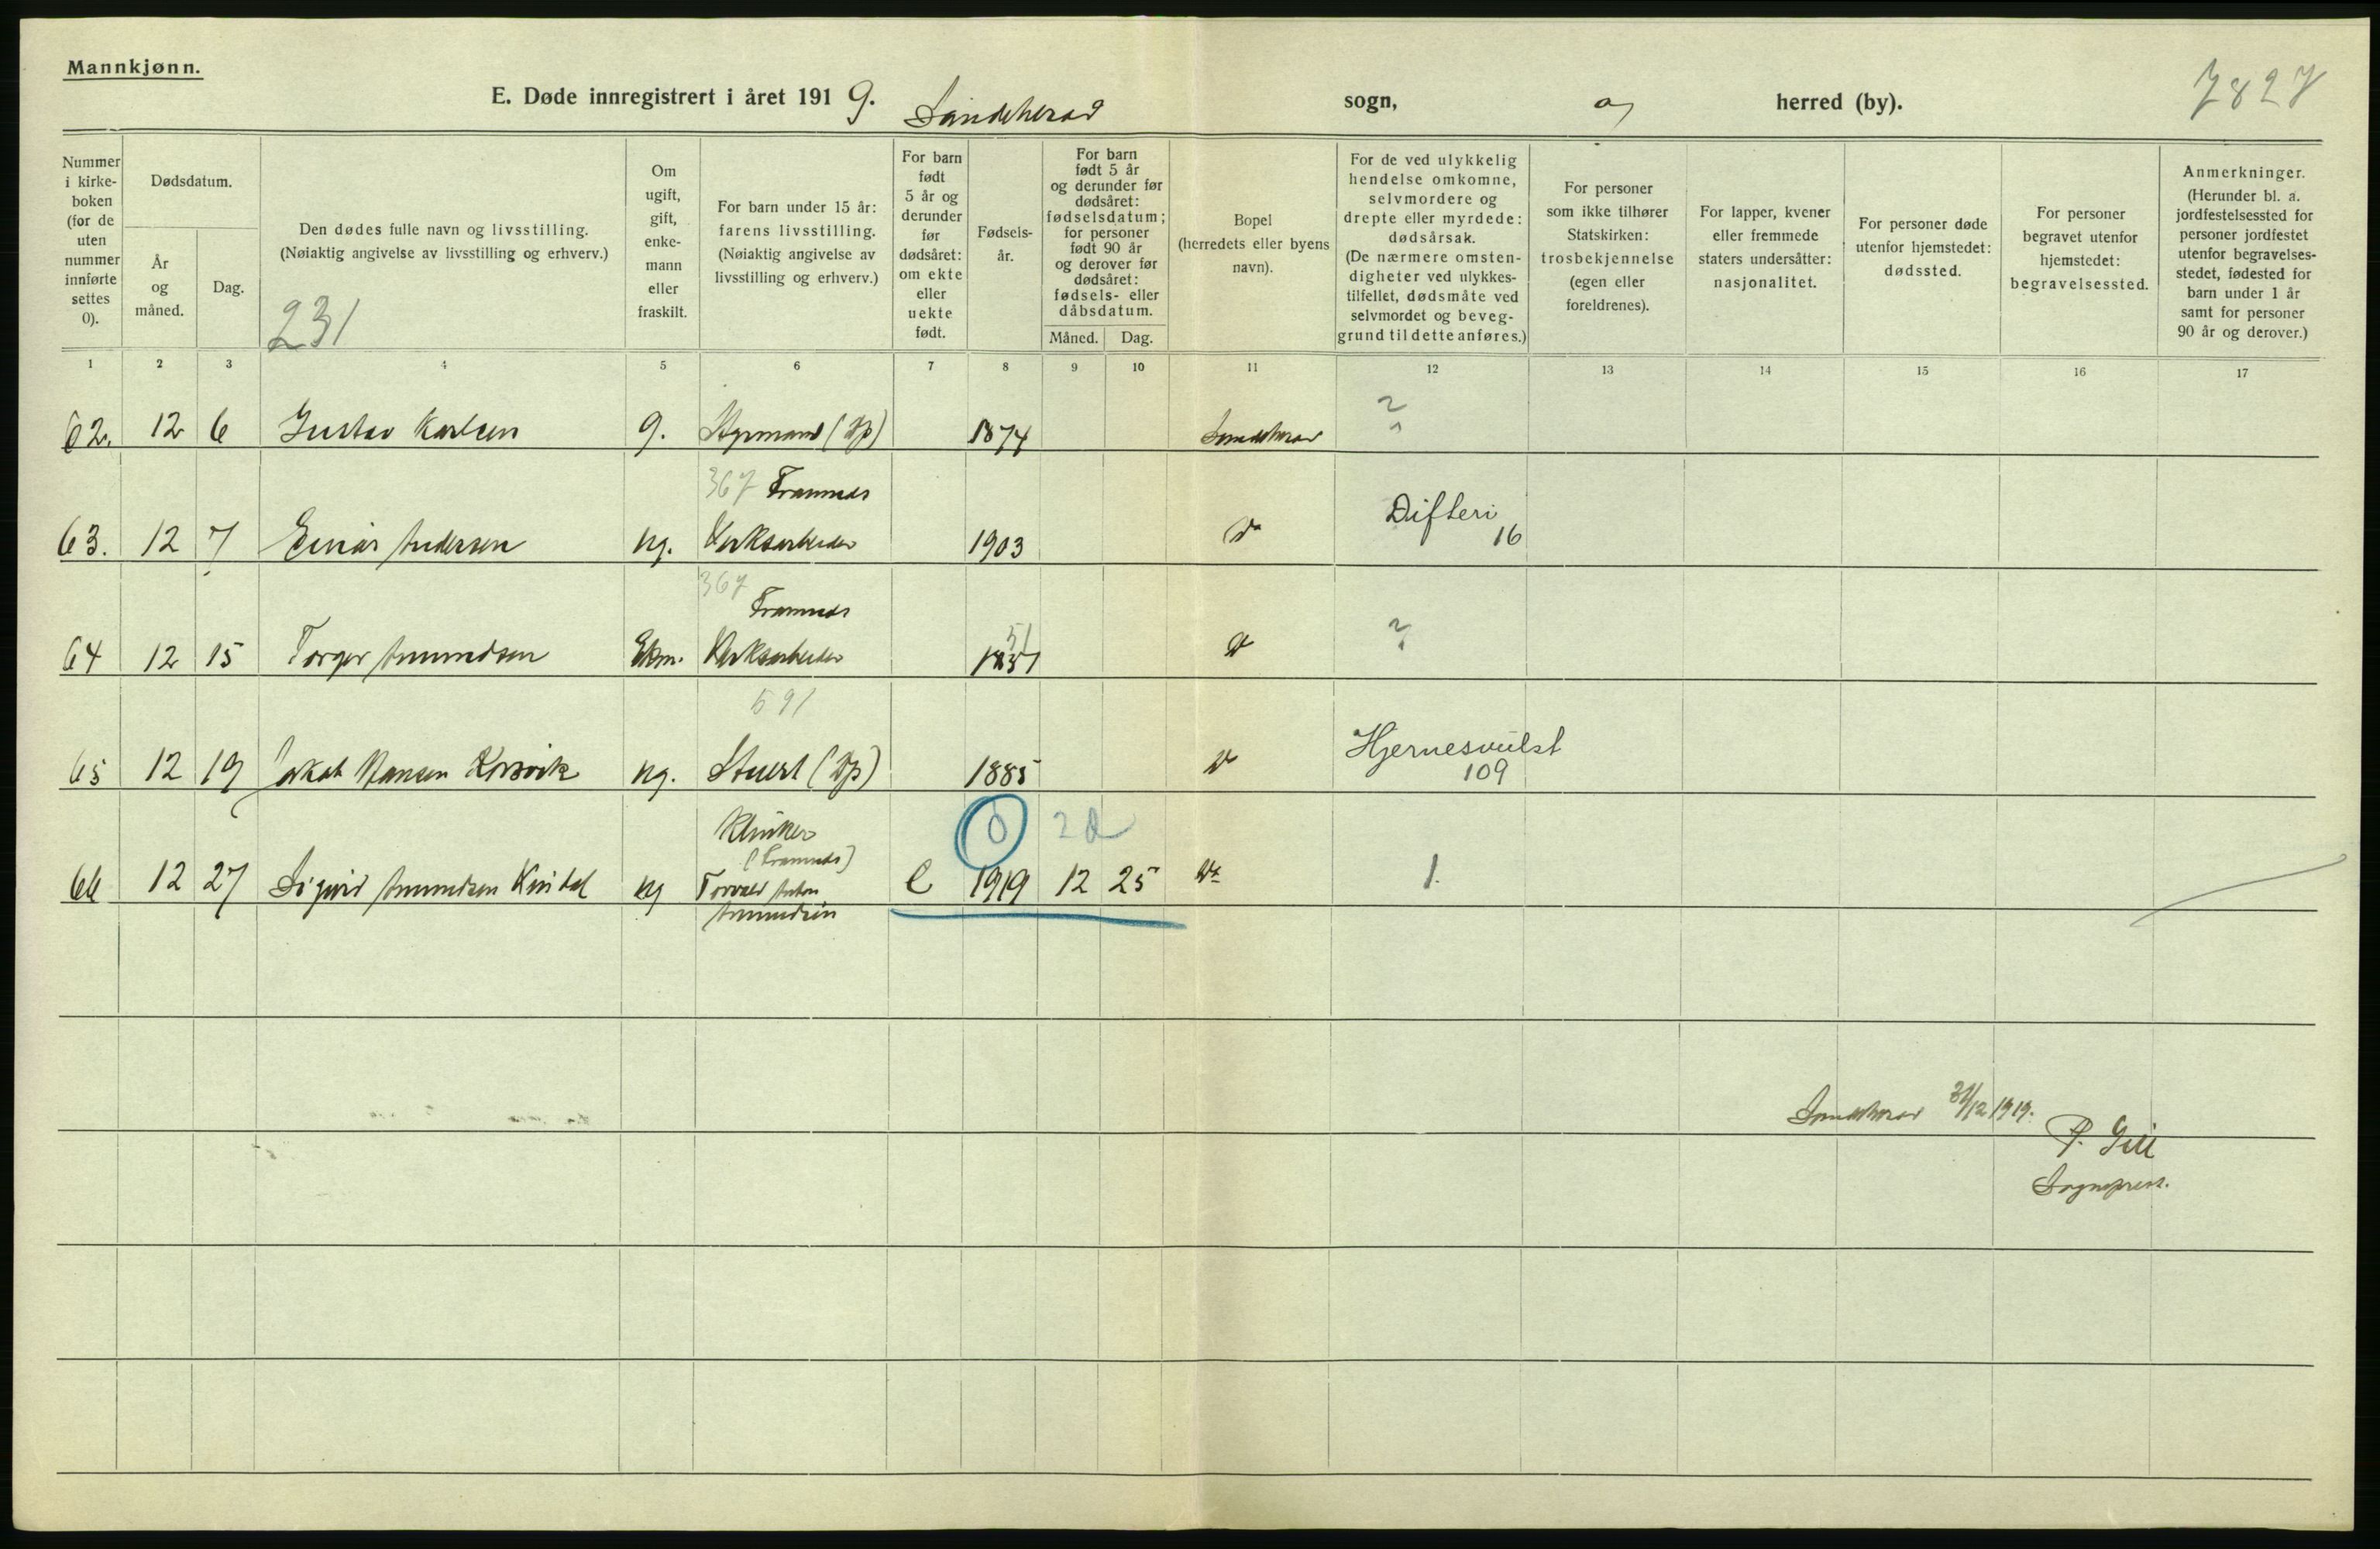 Mannkjønn.
E. Døde innregistrert i året 1919. Sandeherad sogn, herred (by).
7827
Nummer i kirke-boken (for de uten nummer innførte settes 0).
Dødsdatum.
År og måned.
Dag.
Den dødes fulle navn og livsstilling.
(Nøiaktig angivelse av livsstilling og erhverv.)
231
Om ugift, gift, enke-mann eller fraskilt.
For barn under 15 år: farens livsstilling. (Nøiaktig angivelse av livsstilling og erhverv.)
For barn født 5 år og derunder før dødsåret: om ekte eller uekte født.
Fødsels-år.
For barn født 5 år og derunder før dødsåret: fødselsdatum; for personer født 90 år og derover før dødsåret: fødsels- eller dåbsdatum.
Måned. Dag.
Bopel (herredets eller byens navn).
For de ved ulykkelig hendelse omkomne, selvmordere og drepte eller myrdede: dødsårsak. (De nærmere omsten-digheter ved ulykkes-tilfellet, dødsmåte ved selvmordet og beveg-grund til dette anføres.)
For personer som ikke tilhører Statskirken: trosbekjennelse (egen eller foreldrenes).
For lapper, kvener eller fremmede staters undersåtter: nasjonalitet.
For personer døde utenfor hjemstedet: dødssted.
For personer begravet utenfor hjemstedet: begravelsessted.
Anmerkninger. (Herunder bl. a. jordfestelsessted for personer jordfestet utenfor begravelses-stedet, fødested for barn under 1 år samt for personer 90 år og derover.)
1 2 3 4 5 6 7 8 9 10 11 12 13 14 15 16 17
62. 12 6 Gustav Karlsen g. Styrmand 1874 Sandeherad ?
367 Framnæs
63. 12 7 Einar Andersen ug. Verksarbeider 1903 do Difteri 16
367 Framnæs
64 12 15 Torger Amundsen Ekm. Verksarbeider 51 do ?
591
65 12 19 Jakob Hansen ug. Stuert 1885 do Hjernesvulst 109
Klinker (Framnæs) 0 2 d
66 12 27 Sigurd Amundsen ug Torvald Anton Amundsen e 1919 12 25 do 1.
Sandeherad 31/12 1919.
P. Gill
Sogneprest.